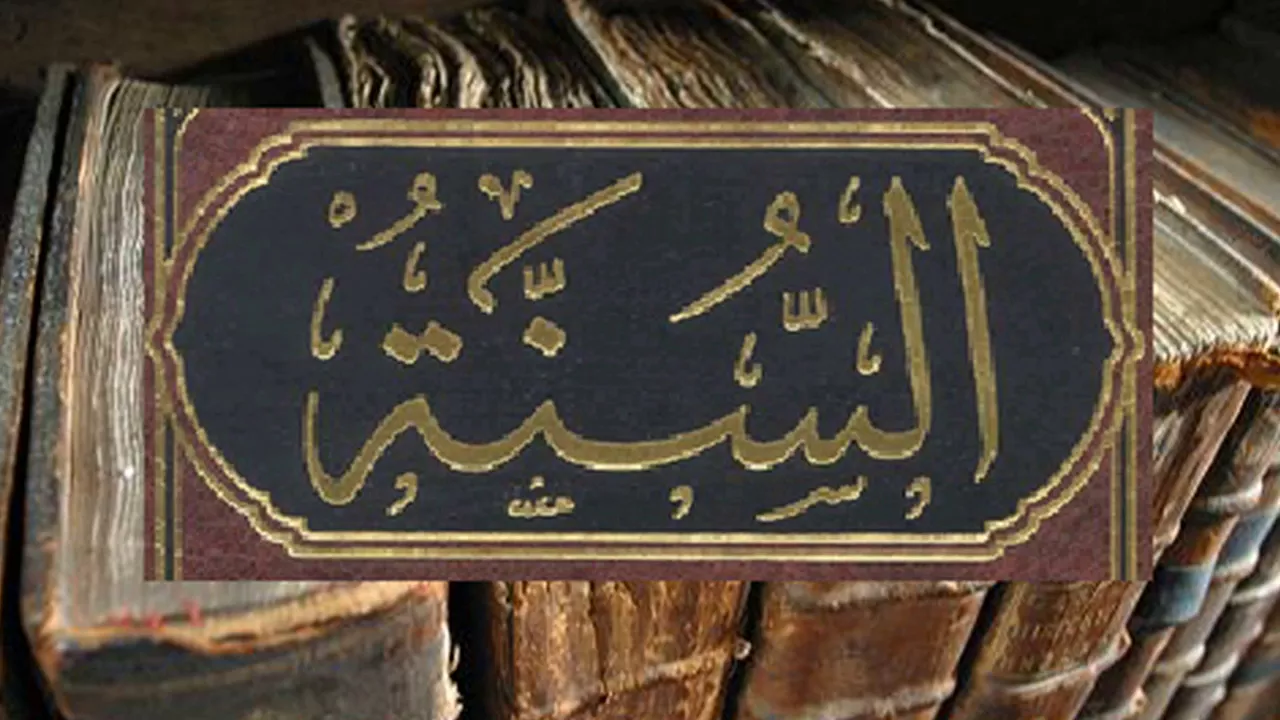 السُّنَّةُ